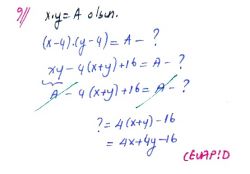 9// x.y = A olsun.
(x-4).(y-4) = A - ?
xy - 4(x+y) + 16 = A - ?
A - 4(x+y) + 16 = A - ?
? = 4(x+y) - 16
= 4x+4y-16
CEVAP: D